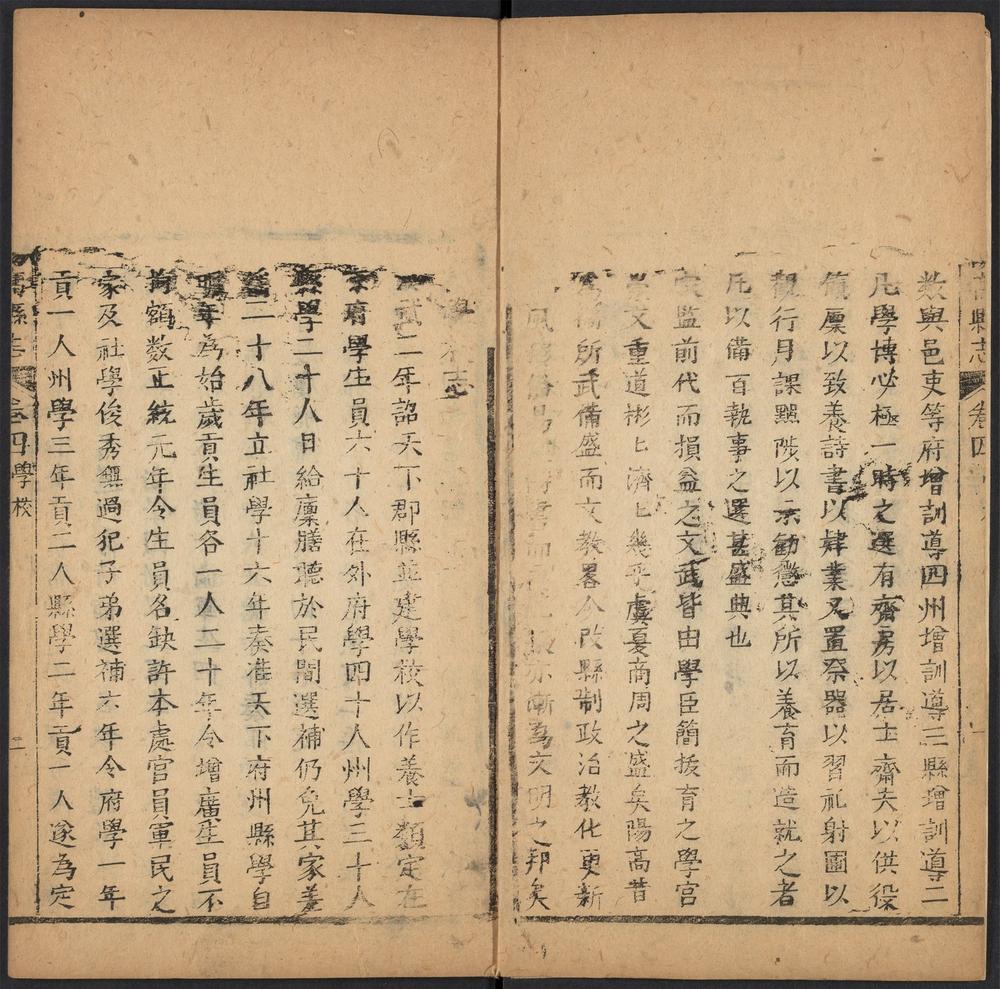 縣志 卷四
数與邑吏等府增訓導四州增訓導三縣增訓導二
凡學博必極一時之選有齋房以居士齋夫以供役
廩以致養詩書以肄業又置祭器以習礼射圃以
觀行月課黜陟以示勸懲其所以養育而造就之者
凡以備百執事之選甚盛典也
監前代而損益之文武皆由學臣簡拔育之學宮
文重道彬匕濟匕幾乎虞夏商周之盛矣陽高昔
所武備盛而文教畧今改縣制政治教化更新
風 漸為文明之邦矣
志
武二年詔天下郡縣並建學校以作養士類定在
府學生員六十人在外府學四十人州學三十人
縣學二十人日給廩膳聽於民間選補仍免其家差
二十八年立社學十六年奏准天下府州縣學自
明年為始歲貢生員各一人二十年令增廣生員不
拘額数正統元年令生員名缺許本處官員軍民之
家及社學俊秀無過犯子弟選補六年令府學一年
貢一人州學三年貢二人縣學二年貢一人遂為定
縣志 卷四學校 二